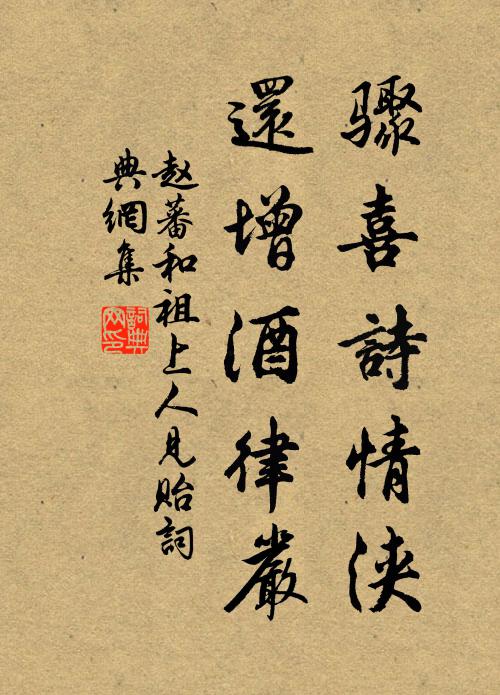 骤喜詩情浹
還增酒律嚴
赵蕃和祖上人見貽詞
典網集
詞典
网印